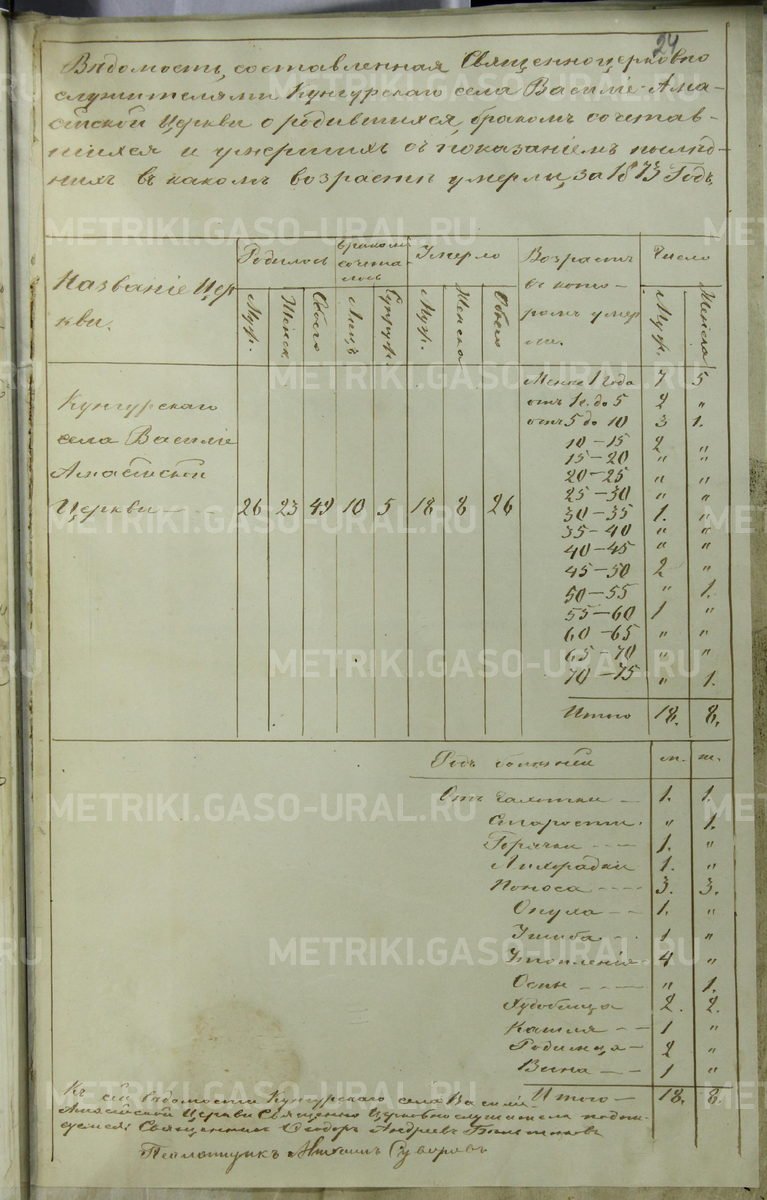 24
Вѣдомость, составленная Священноцерковно
служителями Кунгурскаго села Василіе-Ама-
сійской Церкви о родившихся, бракомъ сочетав-
шихся и умершихъ съ показаніемъ послѣд-
нихъ въ какомъ возрастѣ умерли, за 1873 Годъ
Названіе Цер
кви.
Родилось
Муж.
Женск.
Обоего
бракомъ
сочета-
лось
Лицъ
Супруж.
Умерло
Муж.
Женска
Обоего
Возрастъ
въ кото-
ромъ умер
ли.
Число
Муж.
Женска
Кунгурскаго
села Василіе
Амасійской
Церкви — 26 23 49 10 5 18 8 26
Менѣе 1 года 7 5
отъ 1 г. до 5 2 "
отъ 5 до 10 3 1.
10 — 15 2 "
15 — 20 " "
20 — 25 " "
25 — 30 " "
30 — 35 1. "
35 — 40 " "
40 — 45 " "
45 — 50 2 "
50 — 55 " 1.
55 — 60 1 "
60 — 65 " "
65 — 70 " "
70 — 75 " 1.
Итого 18. 8.
Родъ болѣзни м. ж.
Отъ чахотки — 1. 1.
Старости. " 1.
Горячки 1. "
Лихорадки 1. "
Поноса 3. 3.
Опуха 1. "
Ушиба 1 "
Утопленія 4 "
Оспы " 1.
Худобища 2. 2.
Кашля 1 "
Родимца 2 "
Вина 1 "
Итого — 18. 8.
Къ сей вѣдомости Кунгурскаго села Василіе
Амасійской Церкви Священно Церковнослужители подпи-
суемся: Священникъ Ѳеодоръ Андреевъ
Псаломщикъ Суворовъ
METRIKI.GASO-URAL.RU